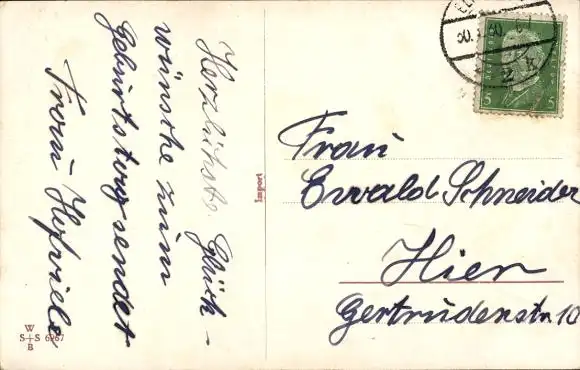 Herzlichste Glück-
wünsche zum
Geburtstag sendet
Frau
Import
Frau
Ewald Schneider
Hier
Gertrudenstr 10
5 5
W
S+S 6967
B